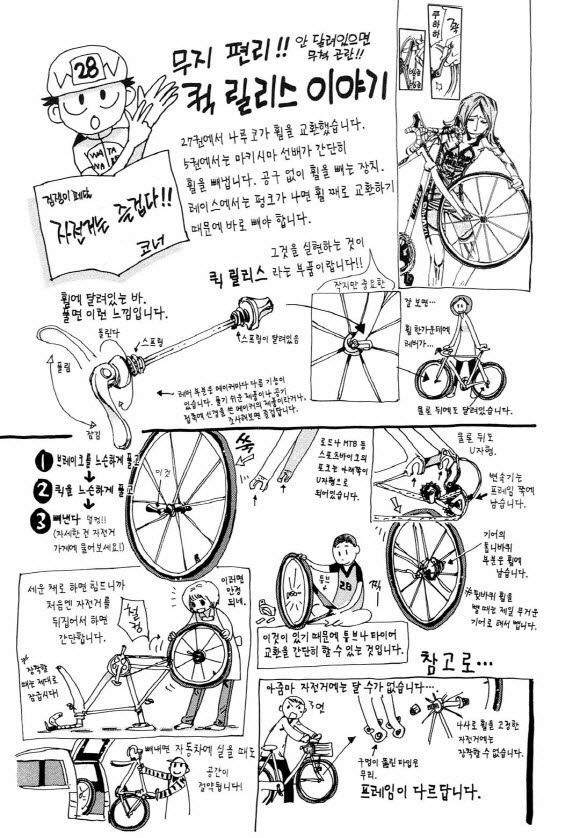 무지 편리!!
안 달려있으면
무척 곤란!!
퀵 릴리스 이야기
28
WA TA
WA NA
자전거는 즐겁다!!
코너
푸하하
쫙
27권에서 나루코가 휠을 교환했습니다.
5권에서는 마키시마 선배가 간단히
휠을 빼냅니다. 공구 없이 휠을 빼는 장치.
레이스에서는 펑크가 나면 휠 째로 교환하기
때문에 바로 빼야 합니다.
그것을 실현하는 것이
퀵 릴리스 라는 부품이랍니다!!
작지만 중요한
휠에 달려있는 바.
풀면 이런 느낌입니다.
돌린다
풀림
잠김
스프링
스프링이 달려있음
레버 부분은 메이커마다 다른 기능이
있습니다. 풀기 쉬운 제품이나 공기
접촉에 신경을 쓴 메이커의 제품이라거나.
조사해보면 즐겁답니다.
잘 보면...
휠 한가운데에
레버가...
물론 뒤에도 달려있습니다.
1 브레이크를 느슨하게 풀고
2 퀵을 느슨하게 풀고
3 빼낸다 덜컹!!
(자세한 건 자전거
가게에 물어보세요!)
이것
쏙
로드나 MTB 등
스포츠바이크의
포크는 아래쪽이
U자형으로
되어있습니다.
물론 뒤도
U자형.
변속기는
프레임 쪽에
남습니다.
기어의
톱니바퀴
부분은 휠에
남습니다.
※뒷바퀴 휠을
뺄 때는 제일 무거운
기어로 해서 뺍니다.
튜브
28
쩍
이것이 있기 때문에 튜브나 타이어
교환을 간단히 할 수 있는 것입니다.
세운 채로 하면 힘드니까
처음엔 자전거를
뒤집어서 하면
간단합니다.
이러면
안정
되네.
철컹
※장착할
때는 제대로
잠급시다!
빼내면 자동차에 실을 때도
공간이
절약됩니다!
참고로...
아줌마 자전거에는 달 수가 없습니다...
구멍이 뚫린 타입은
무리.
나사로 휠을 고정한
자전거에는
장착할 수 없습니다.
프레임이 다르답니다.